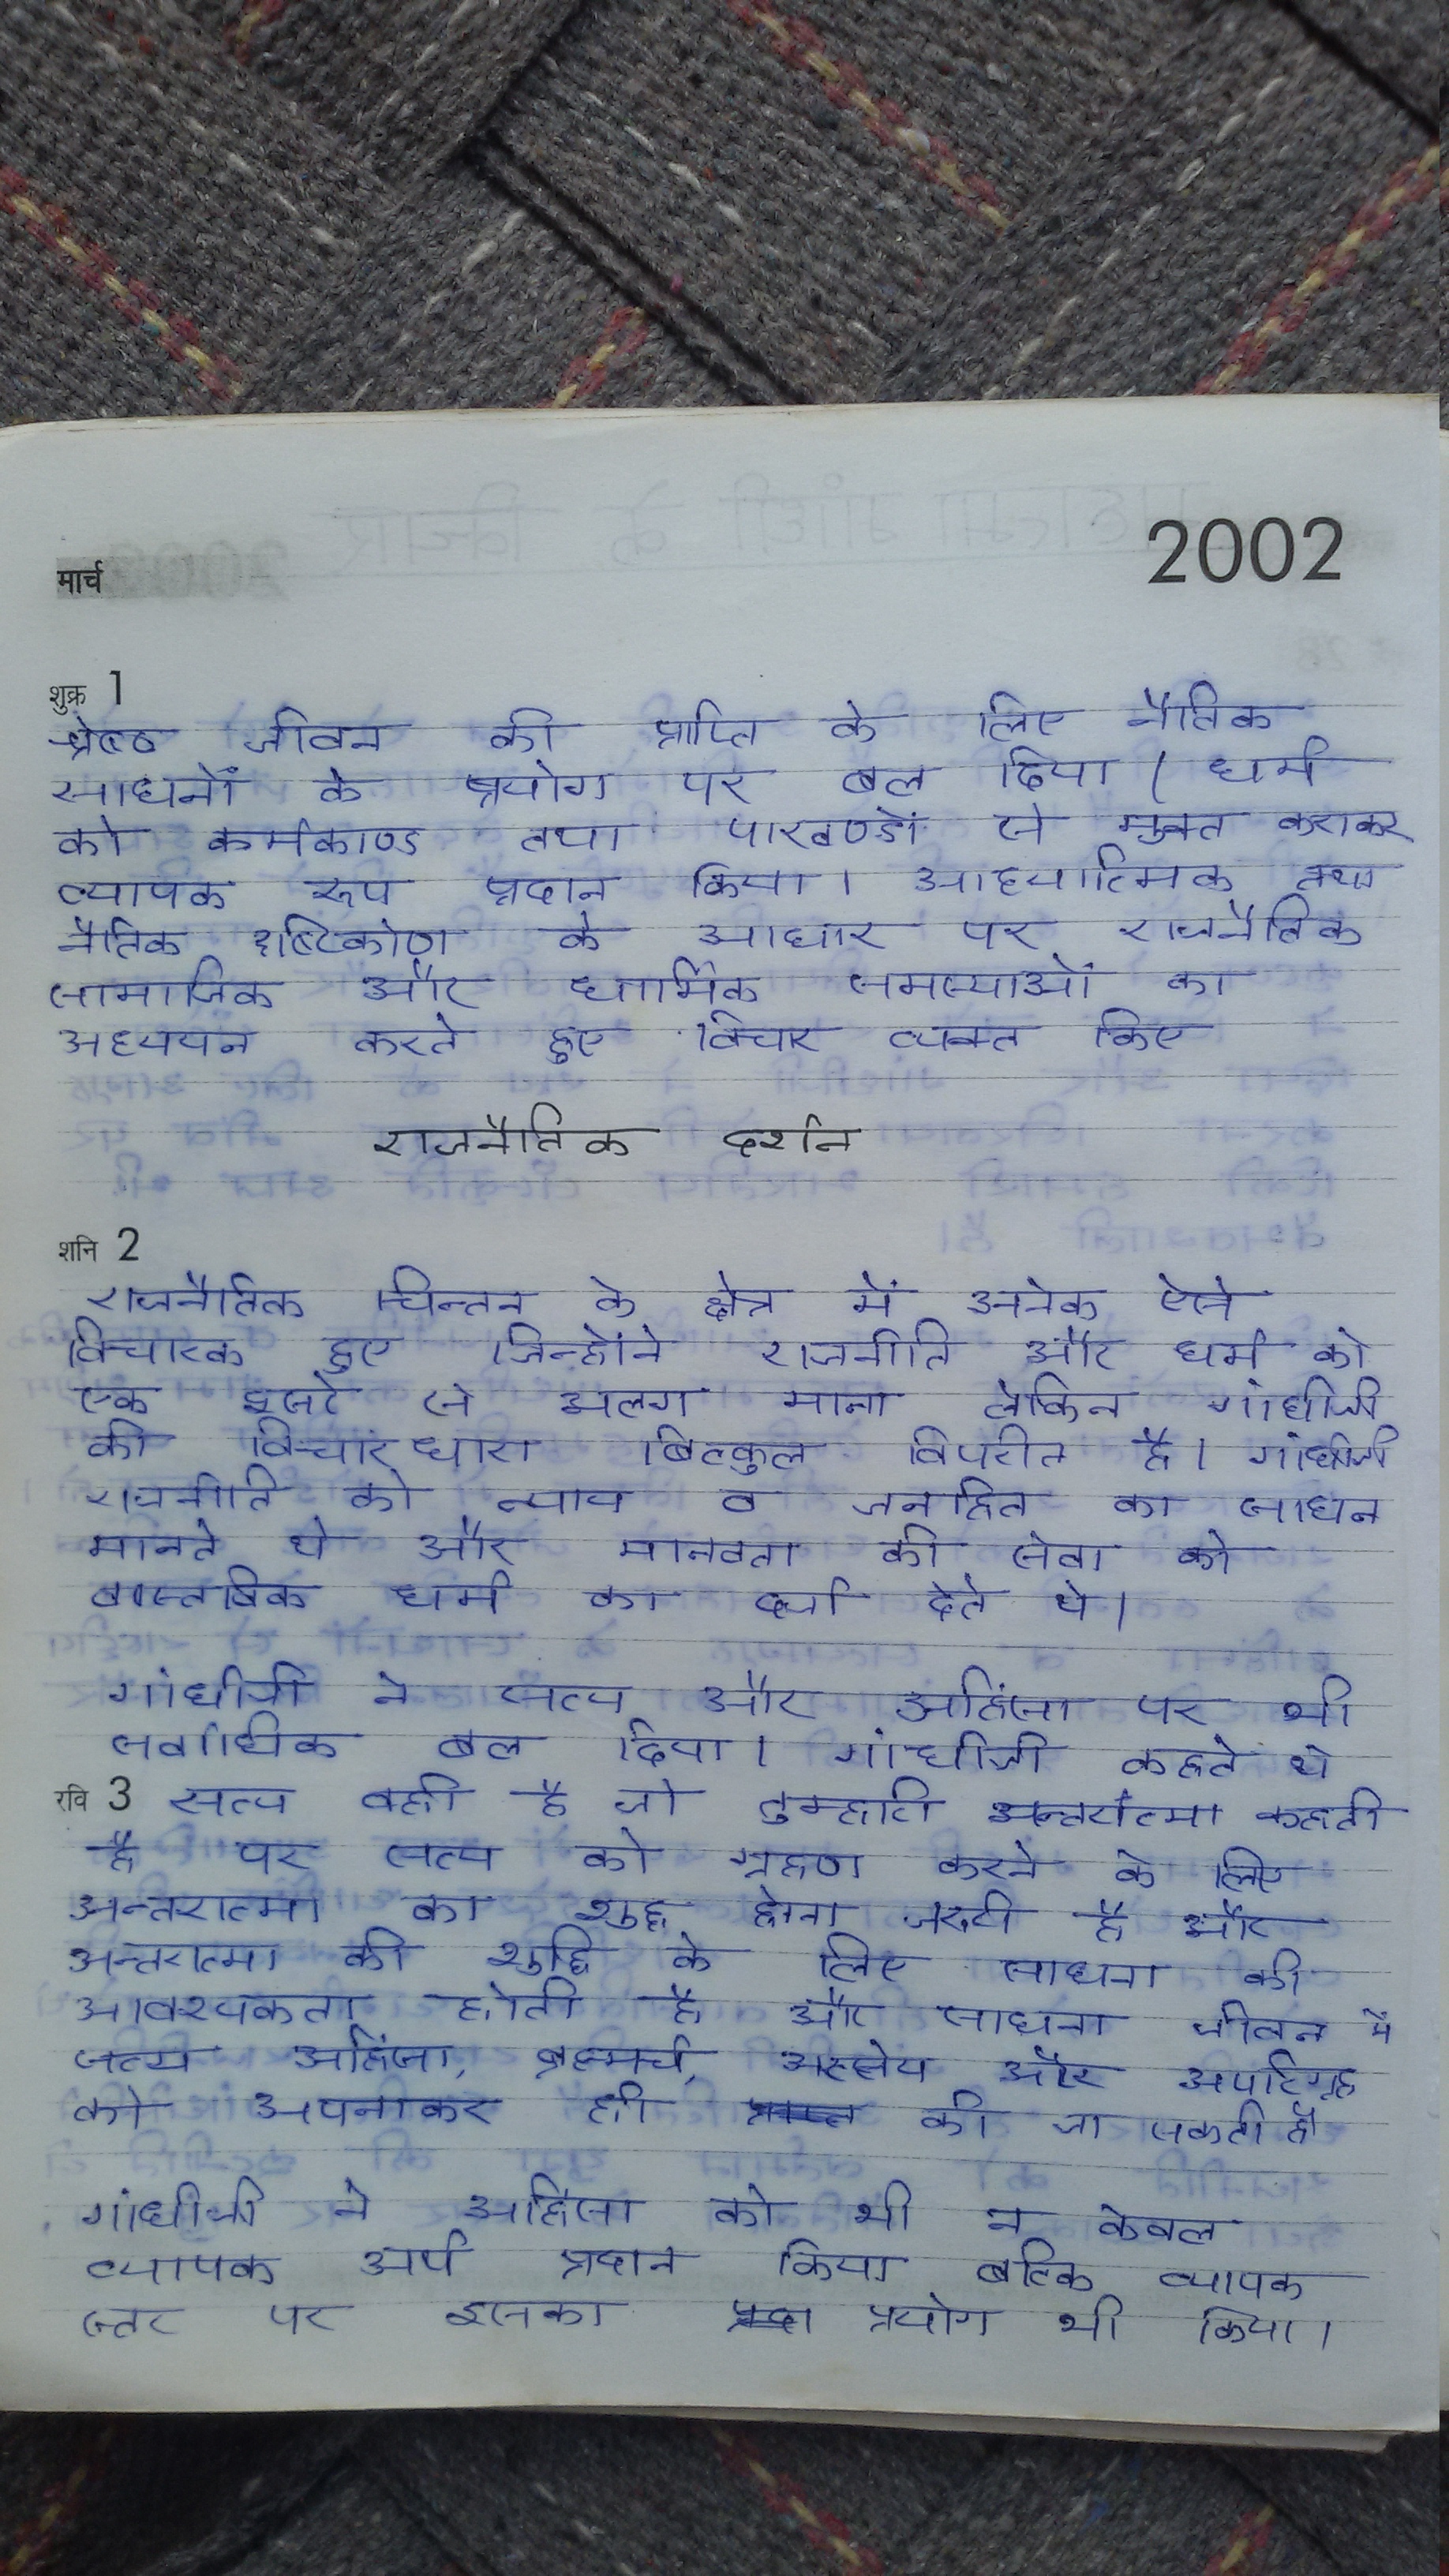 मार्च
2002
शुक्र 1
श्रेष्ठ जीवन की प्राप्ति के लिए नैतिक
साधनों के प्रयोग पर बल दिया। धर्म
को कर्मकाण्ड तथा पाखण्डों से मुक्त कराकर
व्यापक रूप प्रदान किया। आध्यात्मिक तथा
नैतिक दृष्टिकोण के आधार पर राजनैतिक
सामाजिक और धार्मिक समस्याओं का
अध्ययन करते हुए विचार व्यक्त किए
राजनैतिक दर्शन
शनि 2
राजनैतिक चिन्तन के क्षेत्र में अनेक ऐसे
विचारक हुए जिन्होंने राजनीति और धर्म को
एक दूसरे से अलग माना लेकिन गांधीजी
की विचारधारा बिल्कुल विपरीत है। गांधीजी
राजनीति को न्याय व जनहित का साधन
मानते थे और मानवता की सेवा को
वास्तविक धर्म का दर्जा देते थे।
गांधीजी ने सत्य और अहिंसा पर भी
सर्वाधिक बल दिया। गांधीजी कहते थे
रवि 3 सत्य वही है जो तुम्हारी अन्तरात्मा कहती
है पर सत्य को ग्रहण करने के लिए
अन्तरात्मा का शुद्ध होना जरूरी है और
अन्तरात्मा की शुद्धि के लिए साधना की
आवश्यकता होती है और साधना जीवन में
सत्य अहिंसा, ब्रह्मचर्य, अस्तेय और अपरिग्रह
को अपनाकर ही की जा सकती है
गांधीजी ने अहिंसा को भी न केवल
व्यापक अर्थ प्रदान किया बल्कि व्यापक
स्तर पर इसका प्रयोग भी किया।